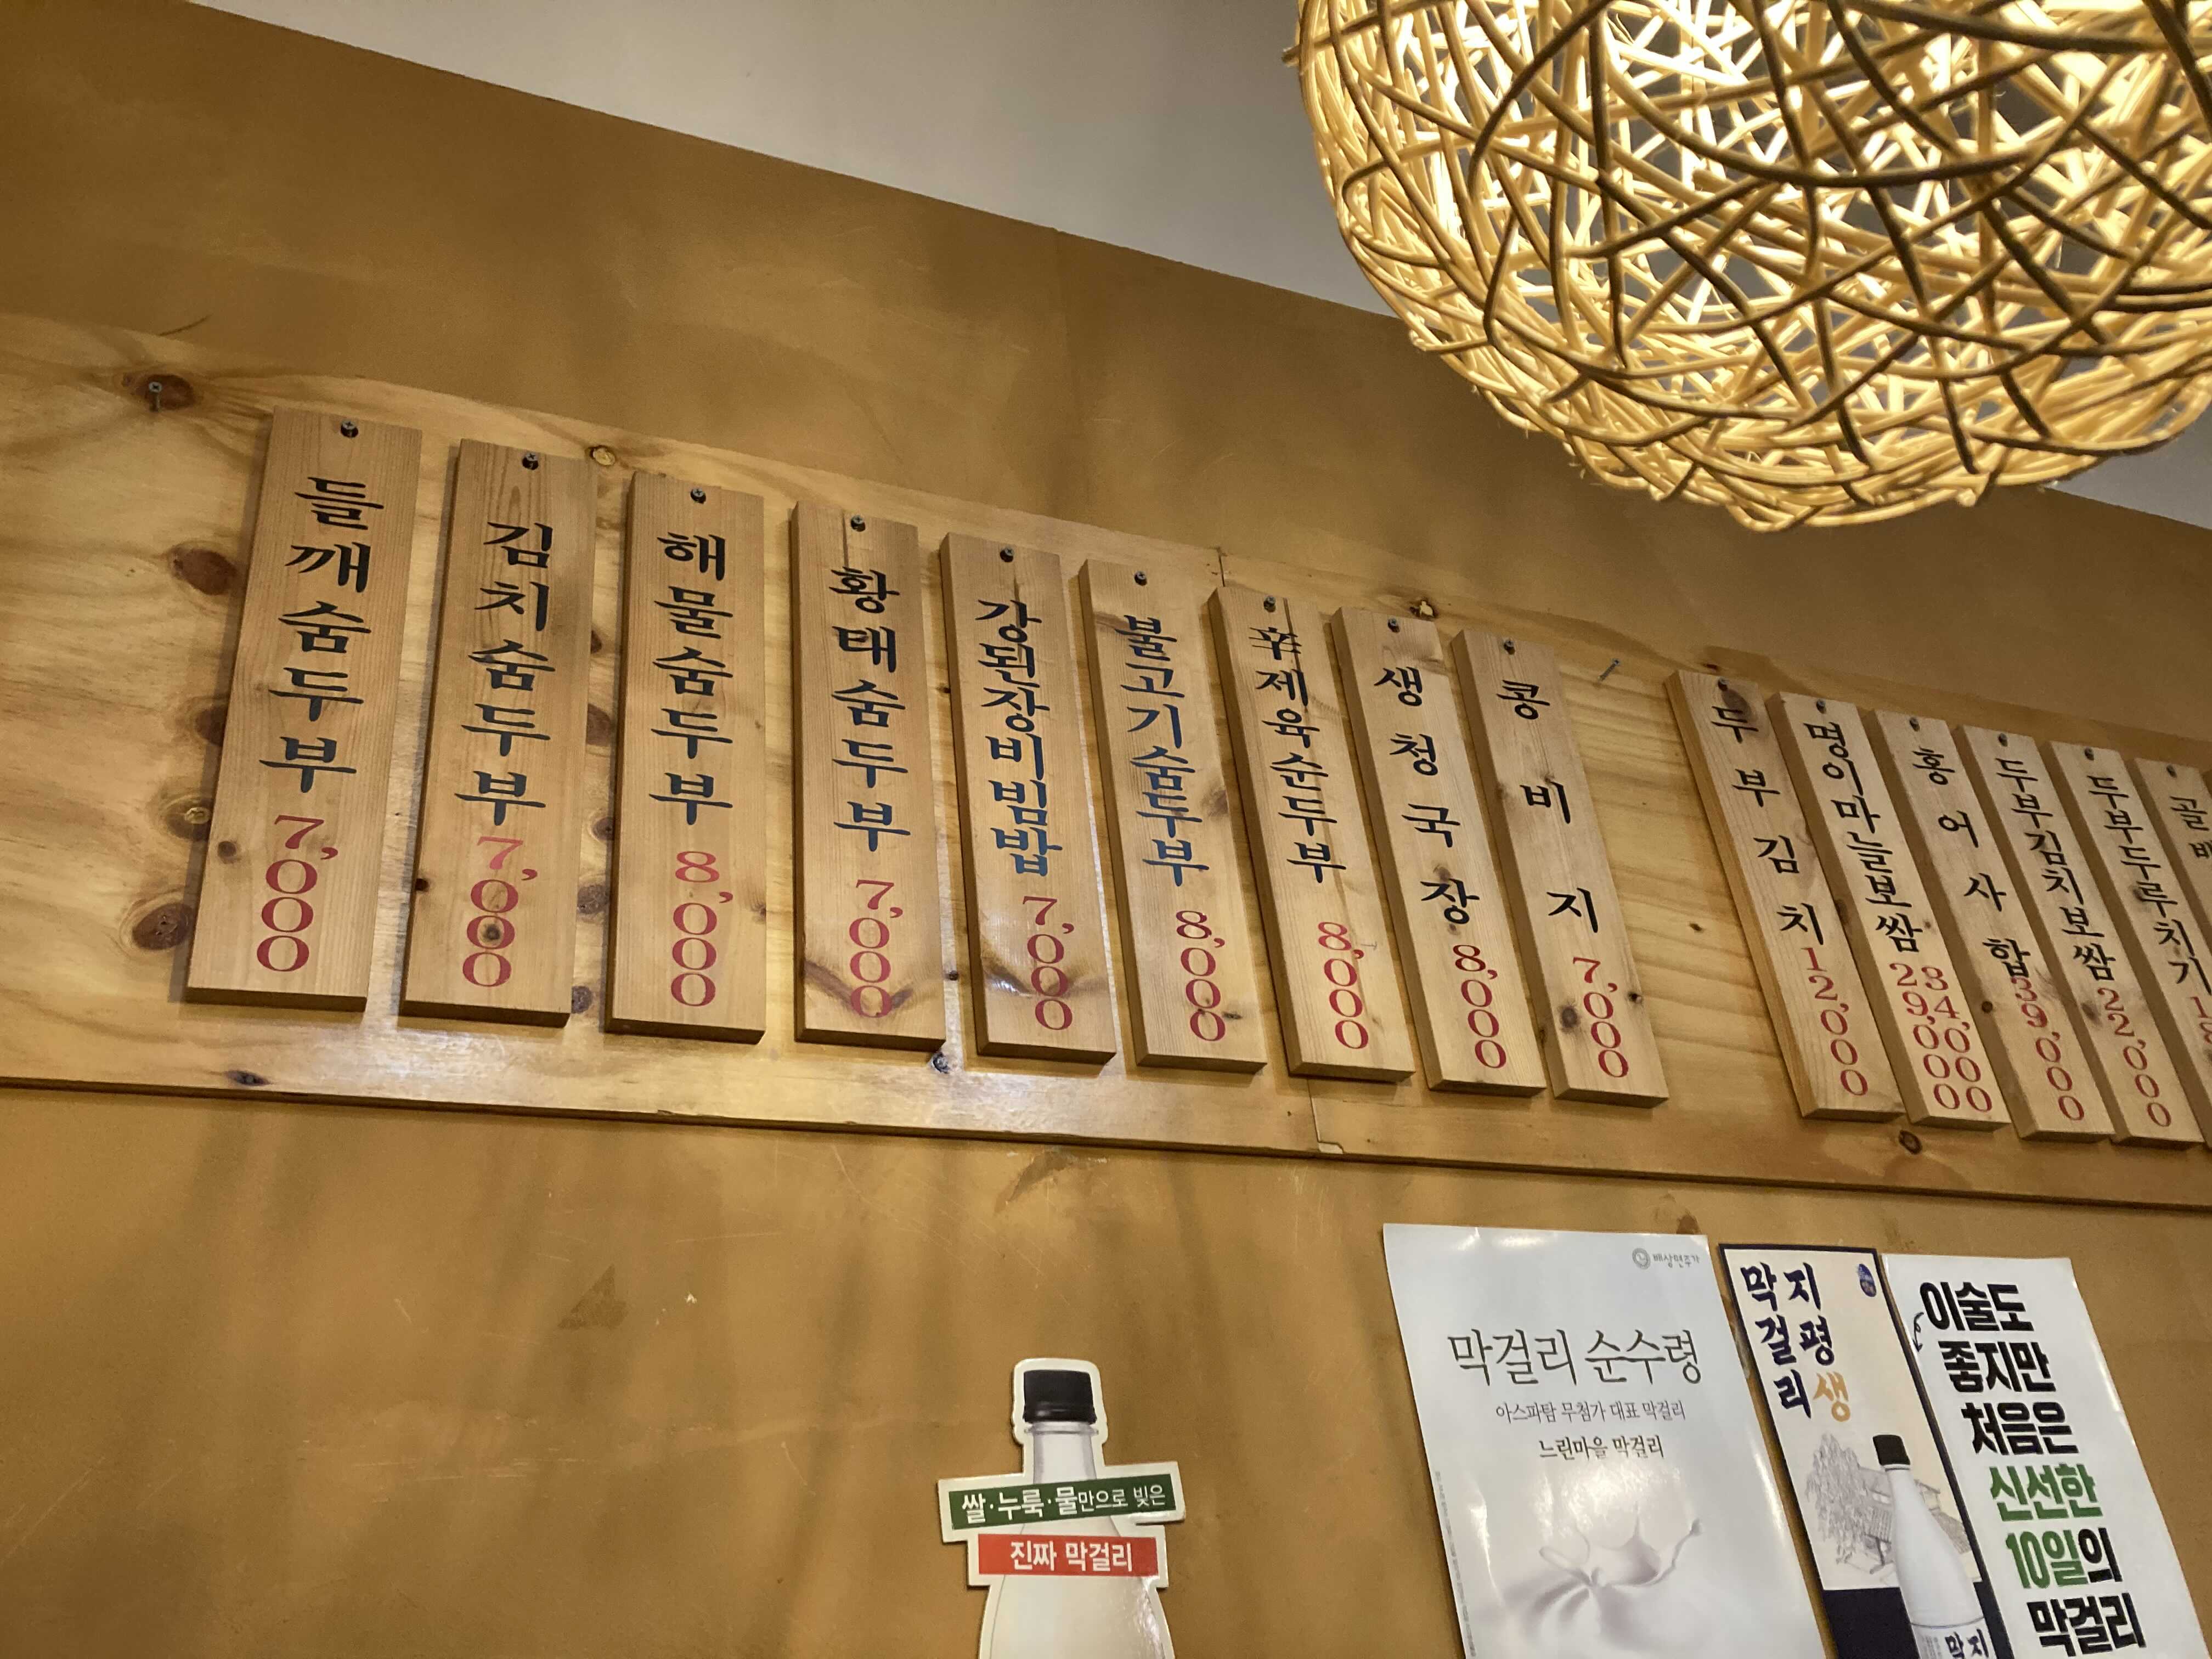 들깨숨두부 7,000
김치숨두부 7,000
해물숨두부 8,000
황태숨두부 7,000
강된장비빔밥 7,000
불고기숨두부 8,000
辛제육순두부 8,000
생청국장 8,000
콩비지 7,000
두부김치 12,000
명이마늘보쌈 29,000 34,000
홍어사합 39,000
두부김치보쌈 22,000
두부두루치기
골
쌀·누룩·물만으로 빚은
진짜 막걸리
배상면주가
막걸리 순수령
아스파탐 무첨가 대표 막걸리
느린마을 막걸리
지평생
막걸리
이술도
좋지만
처음은
신선한
10일의
막걸리